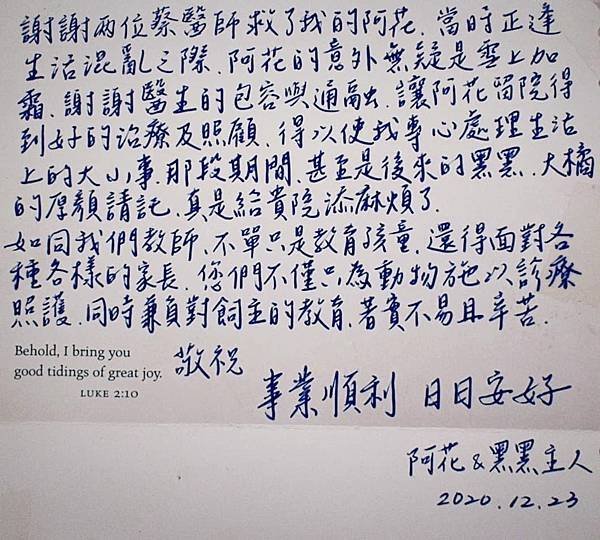 謝謝兩位蔡醫師救了我的阿花.當時正逢
生活混亂之際.阿花的意外無疑是雪上加
霜.謝謝醫生的包容與通融.讓阿花留院得
到好的治療及照顧.得以使我專心處理生活
上的大小事.那段期間.甚至是後來的黑黑.大橘
的厚顏請託.真是給貴院添麻煩了.
如同我們教師.不單只是教育孩童.還得面對各
種各樣的家長.您們不僅只為動物施以診療
照護.同時兼負對飼主的教育.著實不易且辛苦.
Behold, I bring you
good tidings of great joy.
LUKE 2:10
敬祝
事業順利 日日安好
阿花&黑黑主人
2020.12.23